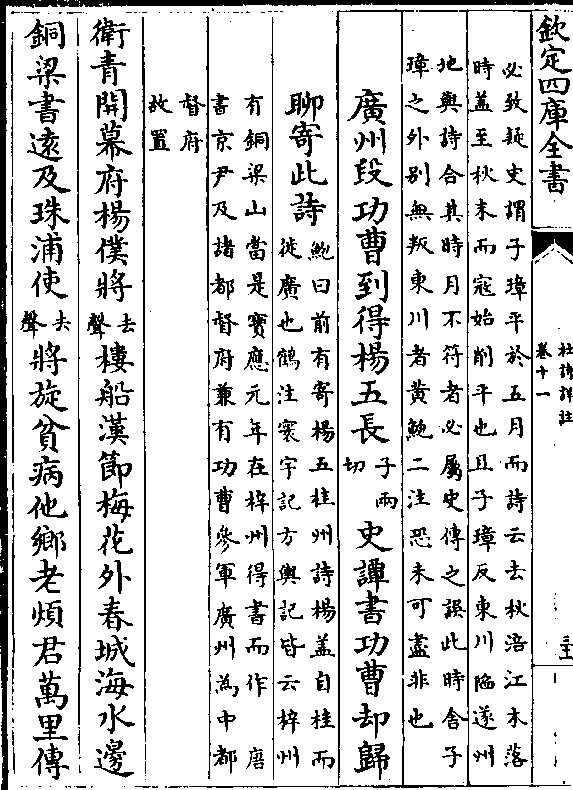 欽定四庫全書
杜詩詳註
卷十一
必致疑史謂子璋平於五月而詩云去秋涪江木落
時蓋至秋末而寇始削平也且子璋反東川陷遂州
地與詩合其時月不符者必屬史傳之誤此時舍子
璋之外別無叛東川者黄鮑二注恐未可盡非也
廣州段功曹到得楊五長子兩切史譚書功曹却歸
聊寄此詩鮑曰前有寄楊五桂州詩楊蓋自桂而
徙廣也鶴注寰宇記方輿記皆云梓州
有銅梁山當是寶應元年在梓州得書而作 唐
書京尹及諸都督府兼有功曹參軍廣州為中都
督府
故置
衛青開幕府楊僕將去聲樓船漢節梅花外春城海水邊
銅梁書遠及珠浦使去聲將旋貧病他鄉老煩君萬里傳